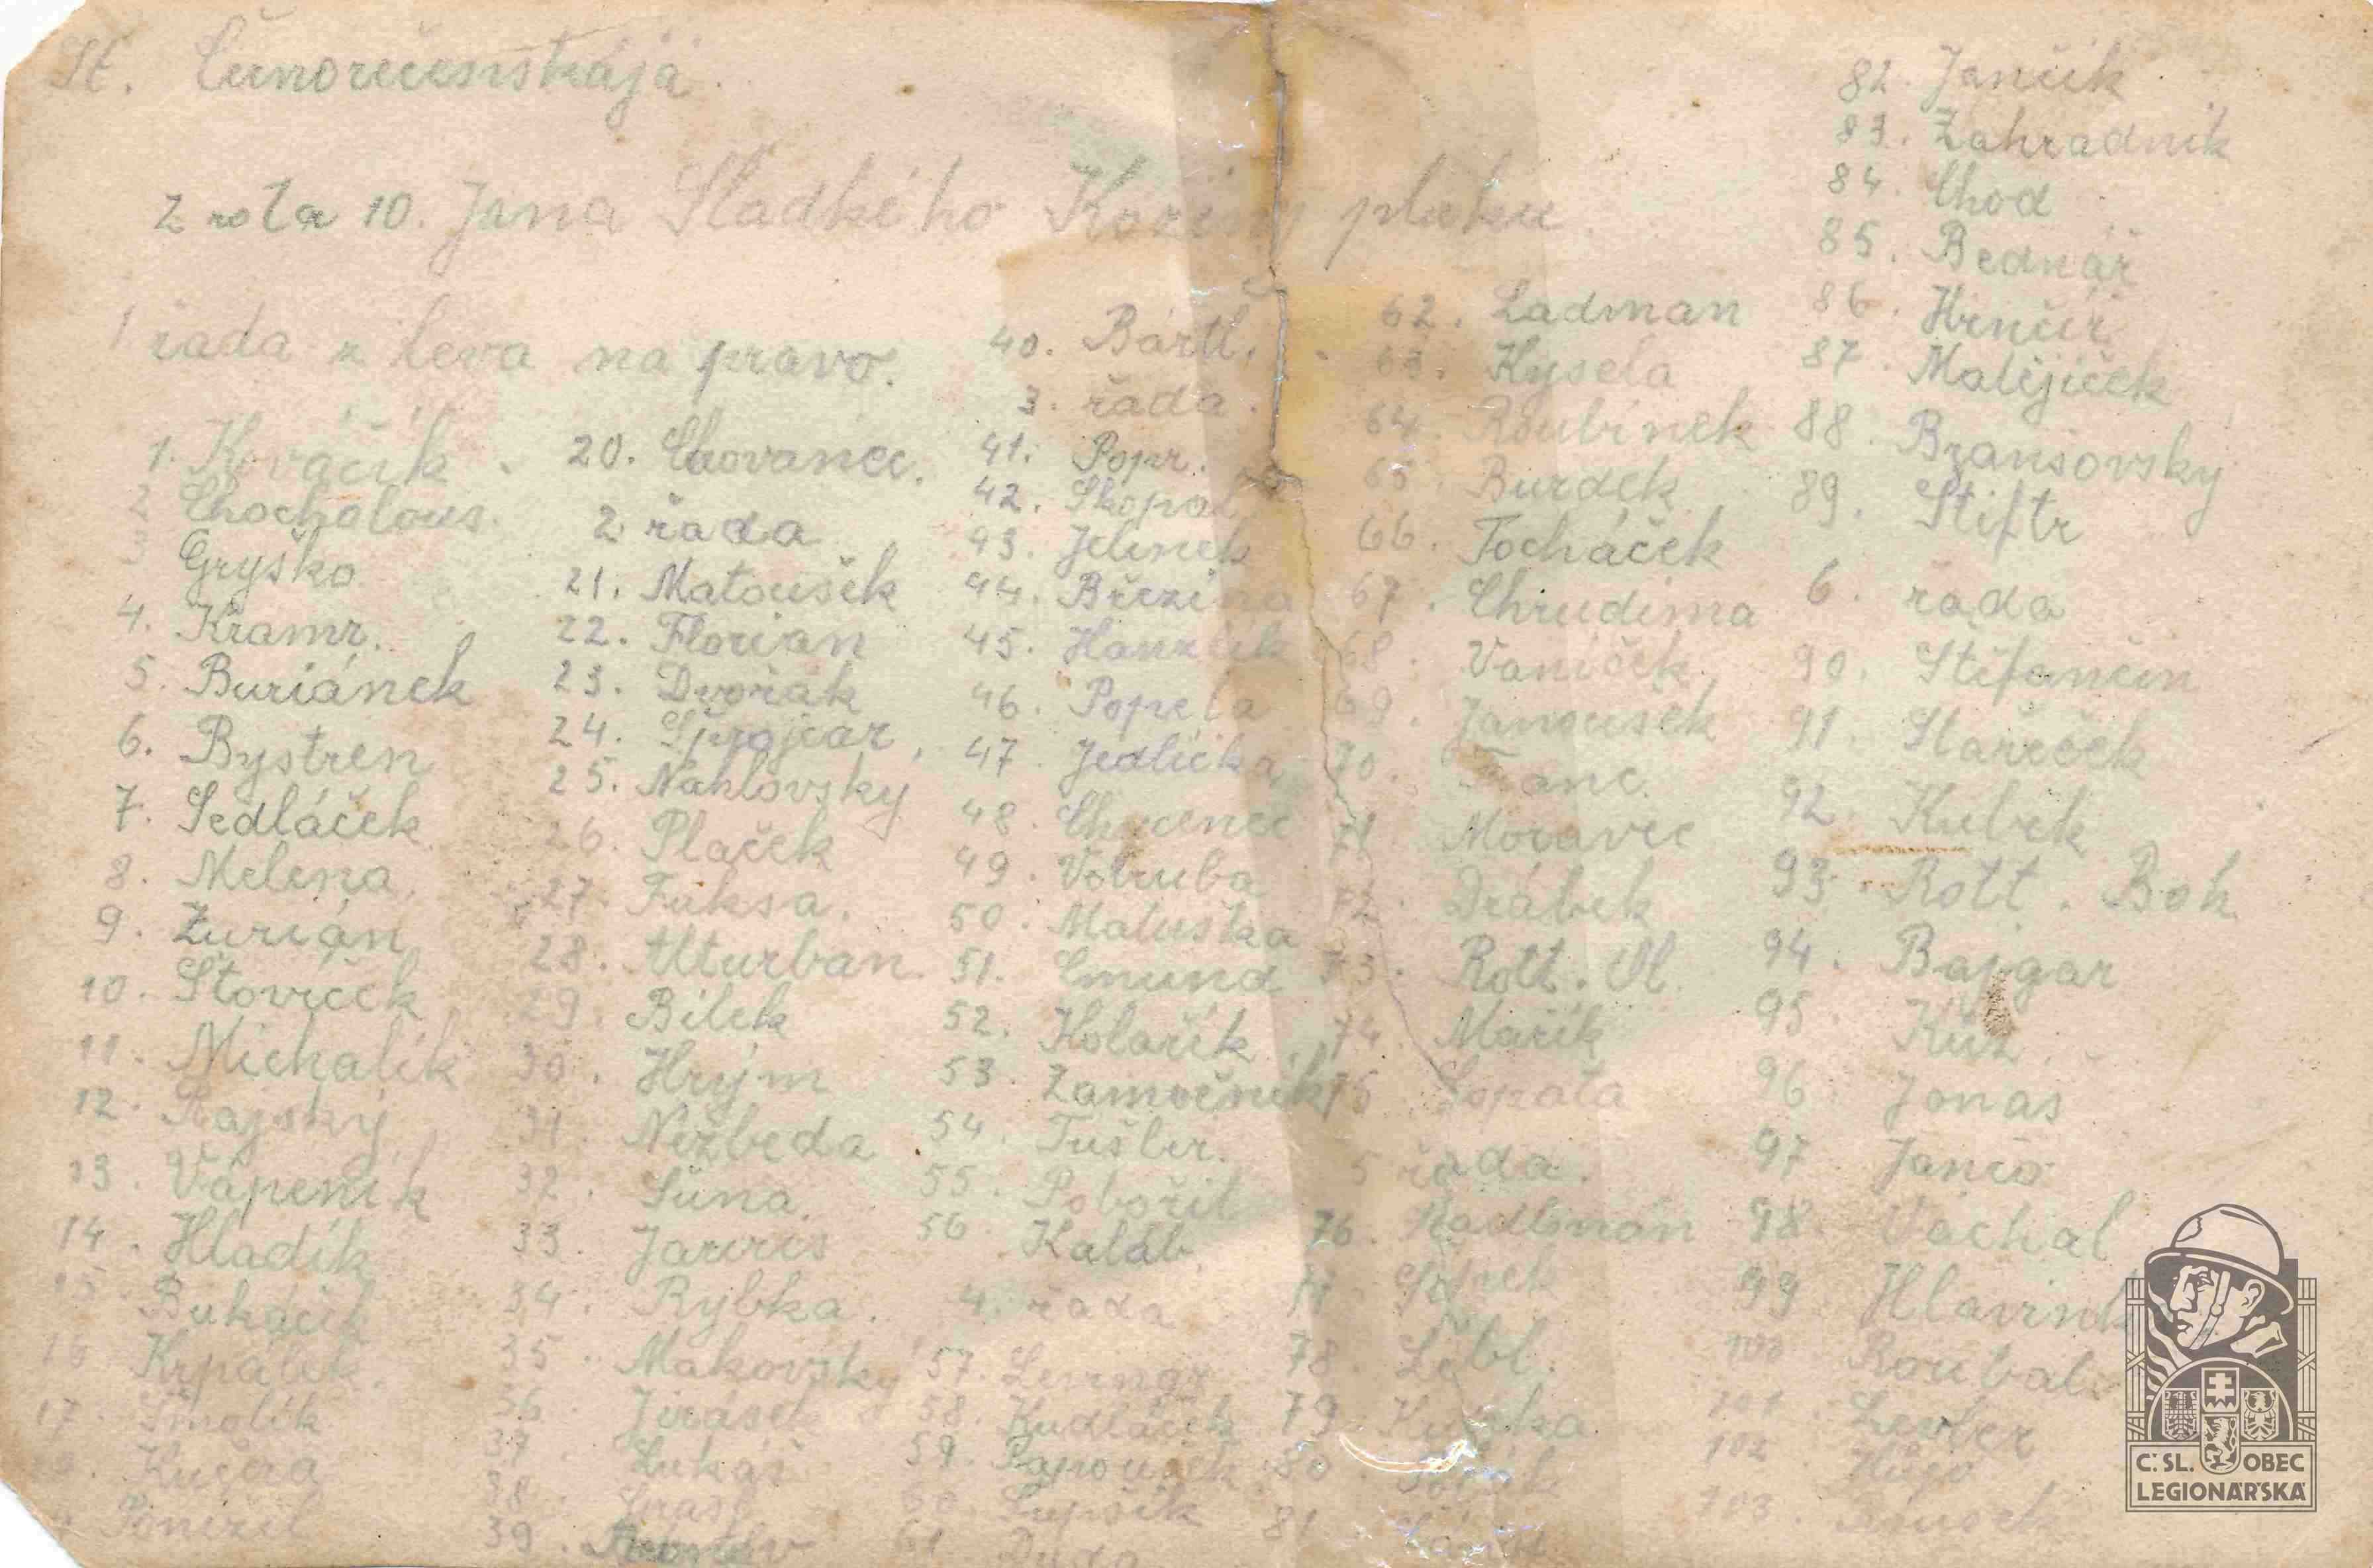 St. Činorečenskája.
2 rota 10. Jana Sladkého Koziny pluku
1 řada z leva na pravo.
1. Kováčik
2 Chochalous.
3 Gryško
4. Kramr.
5. Buriánek
6. Bystren
7. Sedláček
8. Melena
9. Žurián
10. Štovíček
11. Michalík
12. Rajský
13. Vápeník
14. Hladík
15 Bukáček
16 Krpálek.
17. Smolík
Kučera
Ponížil
20. Chovanec.
2 řada
21. Matoušek
22. Florian
23. Dvořák
24.
25. Náhlovský
26. Plaček
27. Fuksa.
28. Alturban
29. Bílek
30. Hrým
31. Nežbeda
32. Šuna.
33. Jarvis
34. Rybka.
35. Makovský
36 Jirásek
37. Lukáš
38.
39.
40. Bártl.
3. řada.
41. Popr.
42. Skopal
43. Jelínek
44. Březina
45. Hanzlík
46. Popela
47. Jedlička
48.
49. Votruba
50. Matuška
51. Emund
52. Kolařík
53. Zamočník
54. Tušler.
55. Pobořil
56. Kaláb
4. řada
57.
58. Kudláček
59. Papoušek
60. Lupsík
61 Duda
62. Ladman
63. Kysela
64. Roubínek
65. Burdek
66. Tocháček
67. Chrudima
68. Vaníček
69. Janoušek
70. Franc.
71 Moravec
72. Drábek
73. Rott. Vl.
74. Mařík
75 Lopata
5 řada.
76. Radlman
77
78. Lébl.
79
80
81
82. Jančik
83. Zahradník
84. Chod
85. Bednář
86. Hrnčíř
87. Matějíček
88. Branšovský
89. Stiftr
6. řada
90. Štefančin
91. Stařeček
92. Kubek
93. Rott. Boh
94. Bajgar
95. Kuž.
96. Jonáš
97 Jančo
98. Vachal
99 Hlavink
100 Roubal
101. Lexler
102 Hugo
103.
Č. SL. OBEC
LEGIONÁŘSKÁ